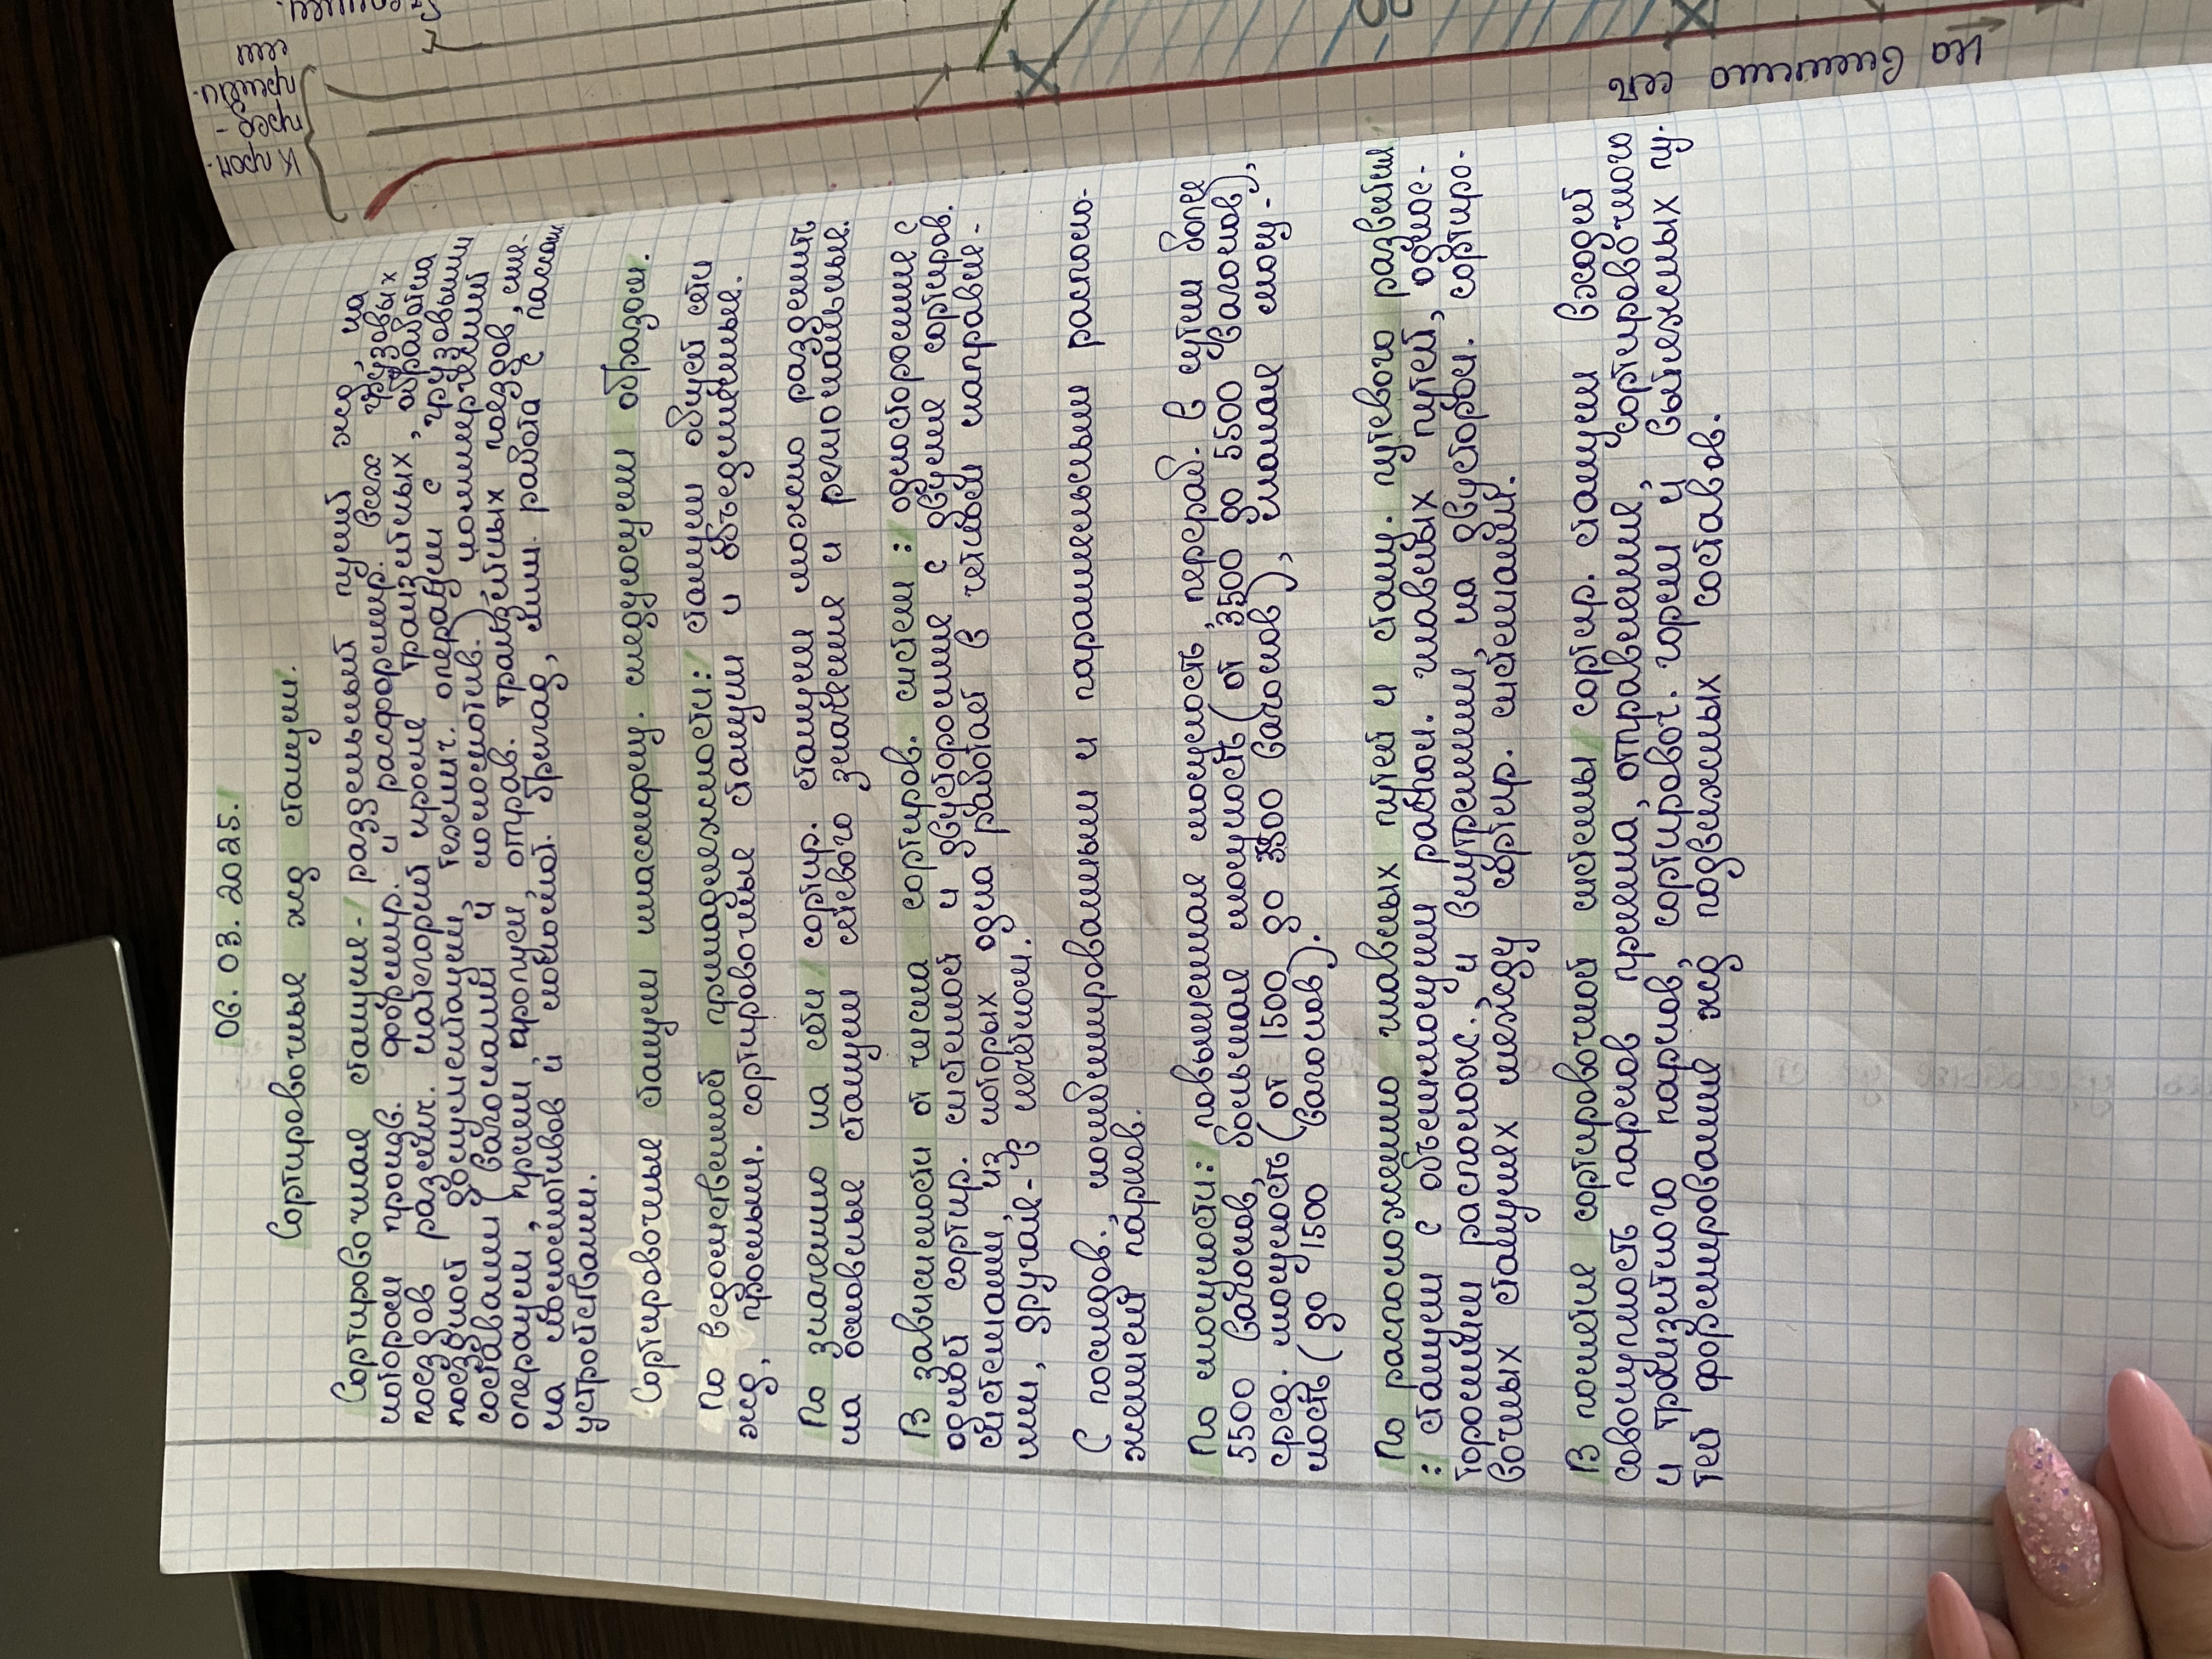 06.03.2025.
Сортировочные жд станции.
Сортировочная станция - раздельный пункт жд, на
котором произв. формир. и расформир. всех грузовых
поездов различ. категорий кроме транзитных, обработка
поездной документации, технич. операции с грузовыми
составами (вагонами и локомотив.) коммерческий
операции, прием, пропуск, отправ. транзитных поездов, сме-
на локомотивов и локомот. бригад, работа с пасаж
устройствами.
Сортировочные станции классифиц. следующим образом.
По ведомственной принадлежности: станции общей сети
жд, промышл. сортировочные станции и объединенные.
По значению на сети сортир. станции можно разделить
на основные станции сетевого значения и региональные.
В зависимости от числа сортиров. систем: односторонние с
одной сортир. системой и двусторонние с двумя сортиров.
системами, из которых одна работает в четном направле-
нии, другая - в нечетном.
С последов., комбинированным и параллельным располо-
жением парков.
По мощности: повышенная мощность, перераб. в сутки более
5500 вагонов, большая мощность (от 3500 до 5500 вагонов),
сред. мощность (от 1500 до 3500 вагонов), малая мощ-
ность (до 1500 вагонов).
По расположению главных путей и станц. путевого развития
: станции с объемлющим распол. главных путей, однос-
торонним располож., и внутренним, на двусторон. сортиро-
вочных станциях между сортир. системами.
В понятие сортировочной системы сортир. станции входит
совокупность парков приема, отправления, сортировочного
и транзитного парков, сортировоч. горки и вытяжных пу-
тей формирования жд подвижных составов.
К
на
сеть